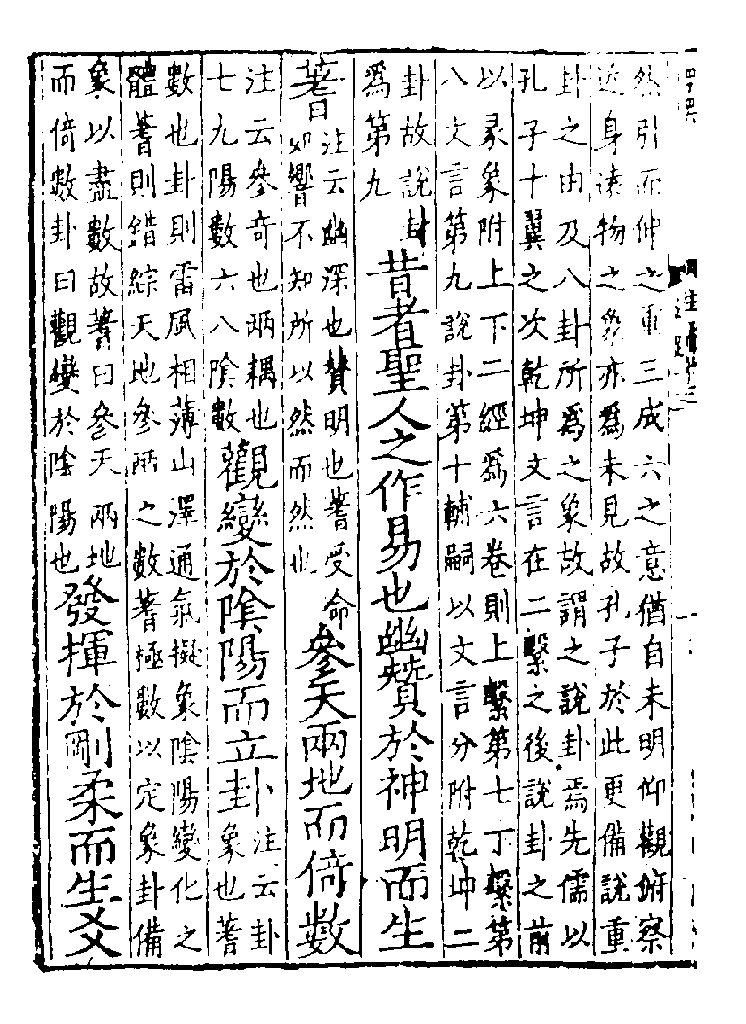 然引而伸之重三成六之意猶自未明仰觀俯察
近身遠物之象亦爲未見故孔子於此更備說重
卦之由及八卦所爲之象故謂之說卦焉先儒以
孔子十翼之次乾坤文言在二繫之後說卦之前
以彖象附上下二經爲六卷則上繫第七下繫第
八文言第九說卦第十輔嗣以文言分附乾坤二
卦故說卦
爲第九
昔者聖人之作易也幽贊於神明而生
蓍
注云幽深也贊明也蓍受命
如響不知所以然而然也
參天兩地而倚數
注云參奇也兩耦也
七九陽數六八陰數
觀變於陰陽而立卦
注云卦
象也蓍
數也卦則雷風相薄山澤通氣擬象陰陽變化之
體蓍則錯綜天地參兩之數蓍極數以定象卦備
象以盡數故蓍曰參天兩地
而倚數卦曰觀變於陰陽也
發揮於剛柔而生爻